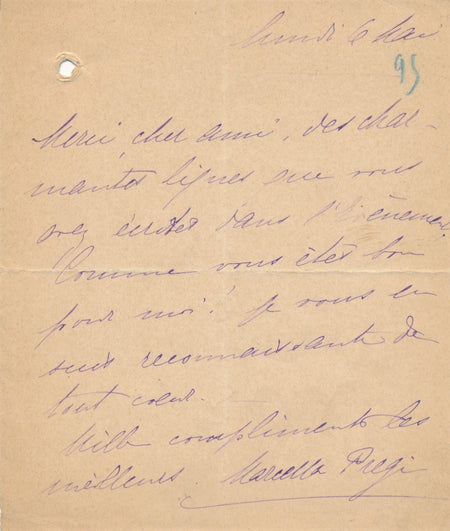 Lundi 6 Mai
95
Merci, cher ami, des char-
mantes lignes que vous
avez écrites dans l'Evènement.
Comme vous êtes bon
pour moi! Je vous en
suis reconnaissante de
tout cœur.
Mille compliments les
meilleurs. Marcella Pregi